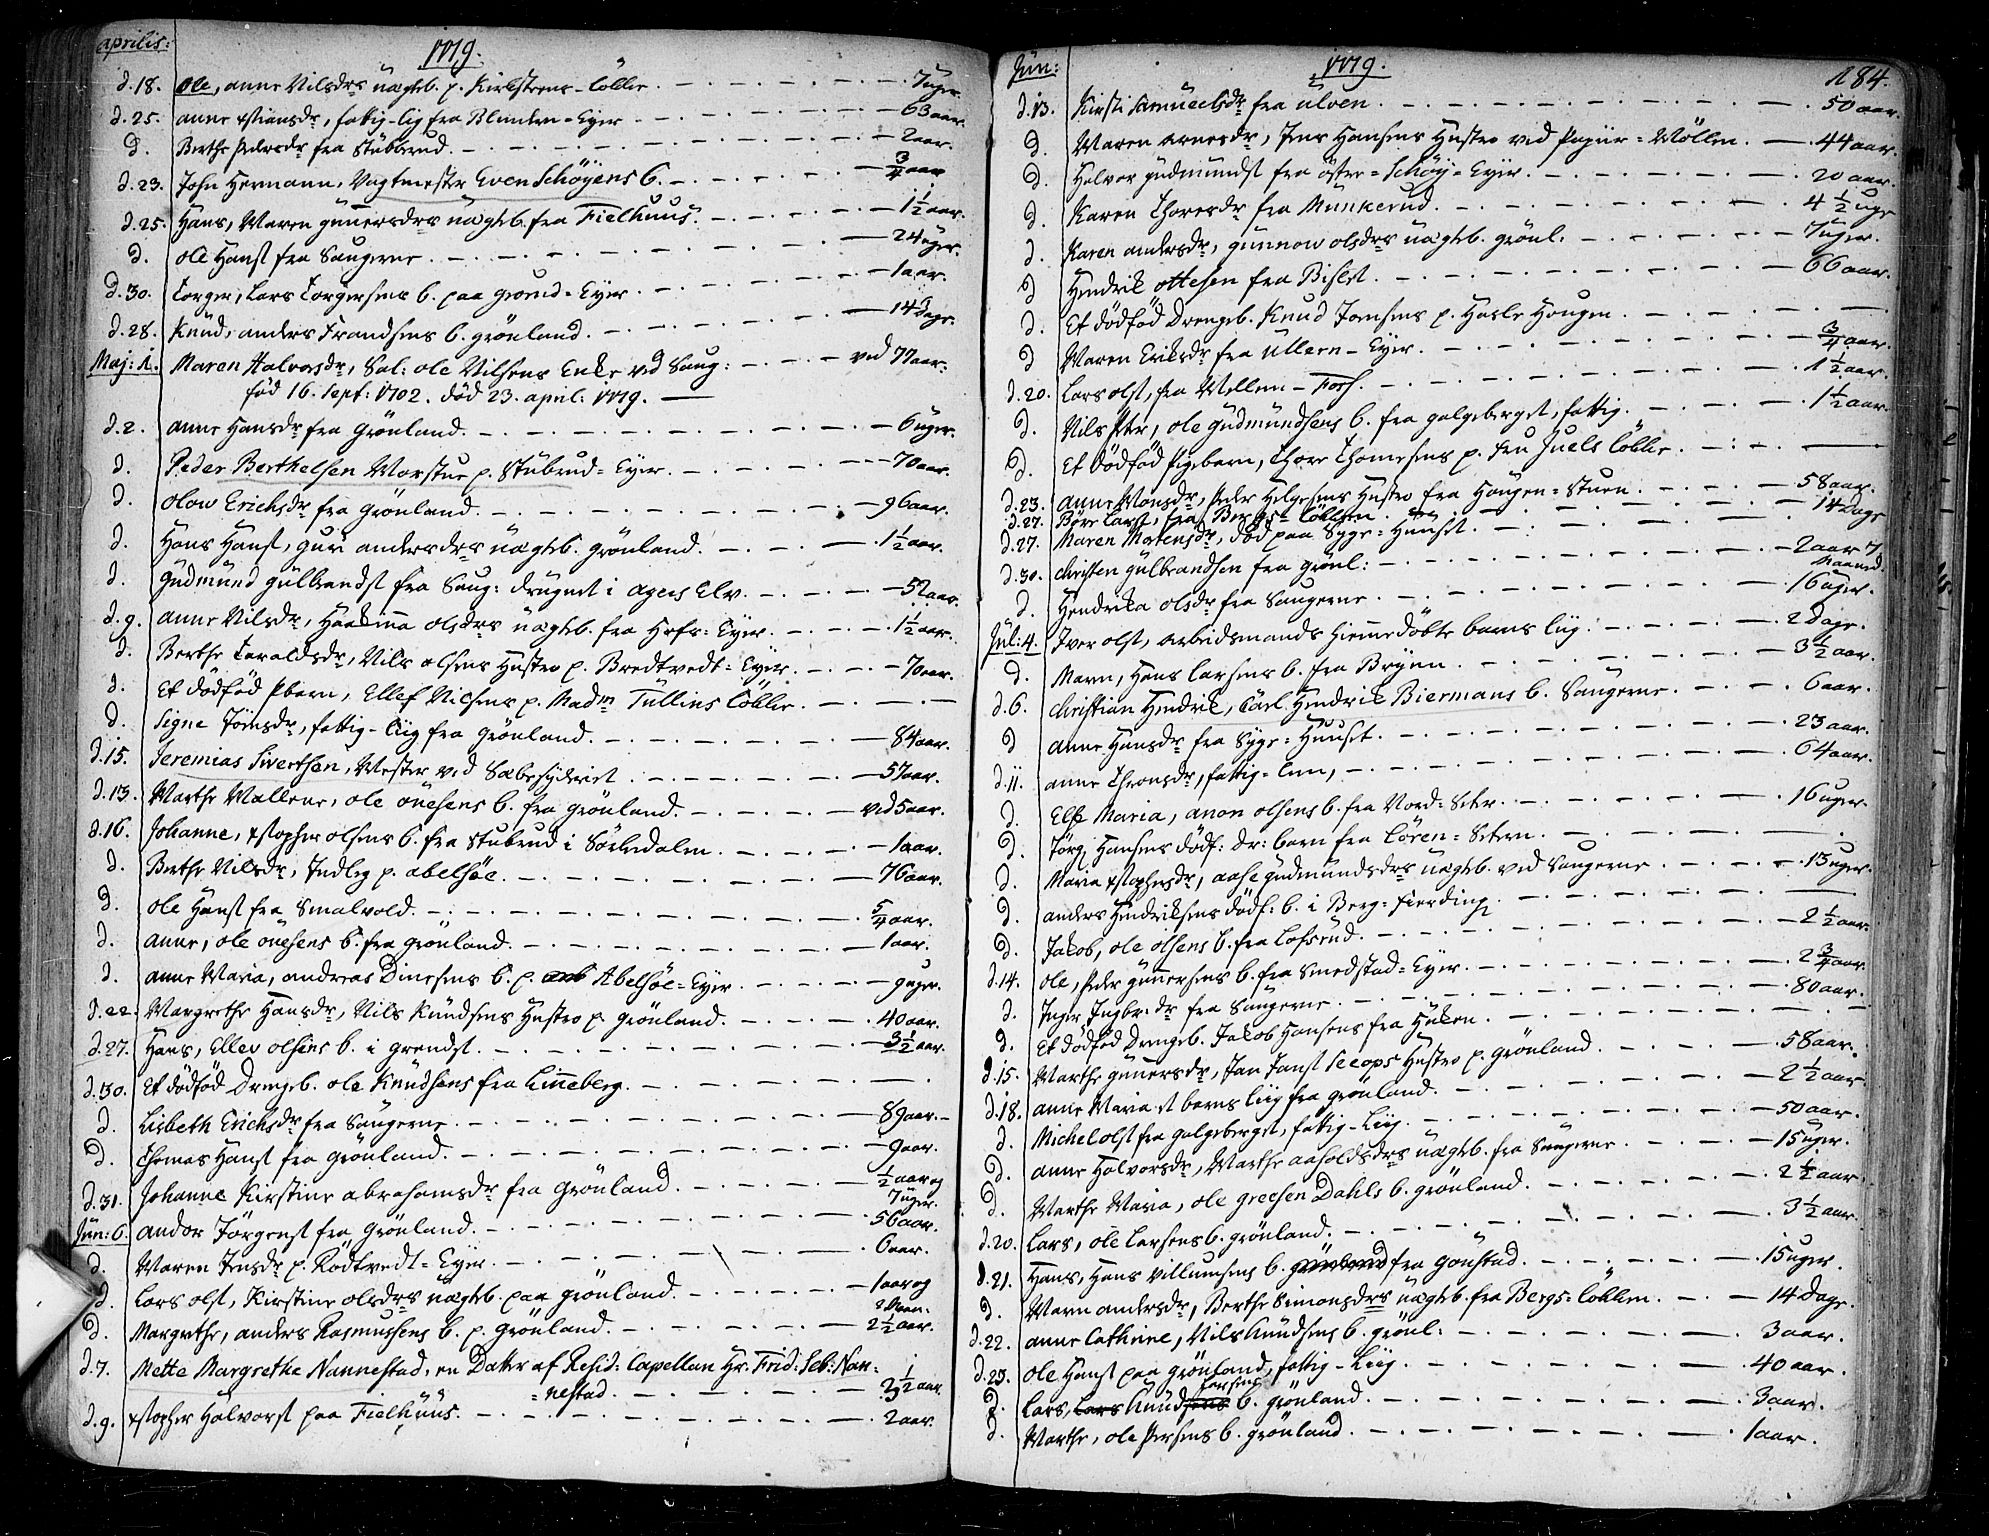 aprilis:
1779.
d. 18. Ole, anne Nilsdrs uægteb. p. Kirkstens-Lökke. 7 uger.
d. 25. anne xstiansdr, fattig-lig fra Blindern-Eyer 63 aar.
d. Berthe Pedersdr fra Stubberud. 2 aar.
d. 23. John Hermann, Vagtmester Even Schöyens b. 3/4 aar
d. 25. Hans, Maren gunnersdrs uægteb. fra Fielhuus. 1 1/2 aar.
d. Ole Hanss fra Saugerne. 24 uger.
d. 30. Torger, Lars Torgersens b. paa Eyer. 1 aar.
d. 28. Knud, anders Frandsens b. grönland. 14 dage.
Maj: 1. Maren Halvorsdr, Sal: ole Nilsens Enke ved Saug: ved 77 aar.
fød 16. Sept: 1702. død 23. april: 1779.
d. 2. anne Hansdr fra Grönland. 6 uger.
d. Peder Berthelsen Worstue p. Stubrud-Eyer. 70 aar.
d. olow Erichsdr fra Grönland. 96 aar.
d. Hans Hanss, guri andersdrs uægteb. grönland. 1 1/2 aar.
d. Gudmund gulbrandss fra Saug: drugnet i agers Elv. 52 aar.
d. 9. anne Nilsdr, olsdrs uægteb. fra Eyer. 1 1/2 aar.
d. Berthe Taraldsdr, Nils olsens Hustro p. Bredtvedt-Eyer. 70 aar.
d. Et dödföd Pbarn, Ellef Nilsens p. Madm Tullins Lökke.
d. Signe Jönsdr, fattig-liig fra Grönland. 84 aar.
d. 15. Jeremias Sivertsen, Mester ved Sæbesyderiet 57 aar.
d. 13. Marthe Mallene, ole önesens b. fra Grönland. ved 5 aar.
d. 16. Johanne, xstopher olsens b. fra Stubrud i Sörkedalen. 1 aar.
d. Berthe Nilsdr, Indleg p. abelsöe. 76 aar.
d. Ole Hanss fra Smalvold. 5/4 aar.
d. Anne, ole önesens b. fra Grönland. 1 aar.
d. anne Maria, andreas Dinesens b. p. Abelsöe-Eyer. 9 uger.
d. 22. Margrethe Hansdr, Nils Knudsens Hustro p. Grönland. 40 aar.
d. 27. Hans, Ellev olsens b. i grendss. 3 1/2 aar.
d. 30. Et dödföd Drengeb. ole Knudsens fra Linneberg.
d. Lisbeth Erichsdr fra Saugerne. 89 aar.
d. Thomas Hanss fra Grönland. 9 aar.
d. 31. Johanne Kirstine abrahamsdr fra Grönland. 1/2 aar og
7 uger.
Jun: 6. andor Törgenss fra Grönland. 56 aar.
d. Maren Jensdr p. Rödtvedt-Eyer. 6 aar.
d. Lars olss, Kirstine olsdrs uægteb. paa Grönland. 1 aar og
2 Maan.
d. Margrethe, anders Rasmussens b. p. Grönland. 2 1/2 aar.
d. 7. Mette Margrethe Nannestad, en Datter af Resid: Capellan Hr. Frid: Seb: Nan-
-nestad. 3 1/2 aar.
d. 9. xstopher Halvorss paa Fielhuus. 2 aar.
Jun:
1779.
184.
d. 13. Kirsti Samuelsdr fra ulven. 50 aar.
d. Maren Arnesdr, Jens Hansens Hustro ved Papiir-Möllen. 44 aar.
d. Halvor gudmundss fra östre-Schöy-Eyer. 20 aar.
d. Karen Thoresdr fra Munkerud. 4 1/2 uge
d. Karen andersdr, gunnow olsdrs uægteb. grönl. 7 uger.
d. Hendrik Ottesen fra Bislet. 66 aar.
d. Et dödföd Drengeb. Knud Joensens p. Hasle Hougen.
d. Maren Eriksdr fra Ullern-Eyer. 3/4 aar.
d. 20. Lars olss, fra Mellem-Foss. 1 1/2 aar.
d. Nils Petr, ole gudmundsens b. fra galgeberget, fattig. 1 1/2 aar.
d. Et dödföd Pigebarn, Thore Thomesens p. Fru Juels Lökke.
d. 23. anne Monsdr, Peder Helgesens Hustro fra Hougen-Stuen. 58 aar.
d. 27. Berte Larss, fra Bergs-Lökken. 14 dage
d. 27. Maren Mortensdr, död paa Syge-Huuset.
d. 30. Christen gulbrandsen fra grönl: 2 aar 7
Maaned.
d. Hendrika olsdr fra Saugerne. 16 uger.
Jul: 4. Iver olss, arbeidsmands hiemmedöbte barns liig. 2 dage.
d. Maren, Hans Larsens b. fra Brynn. 3 1/2 aar.
d. 6. Christian Hendrik, Carl Hendrik Biermans b. Saugerne. 6 aar.
d. anne Hansdr fra Syge-Huuset. 23 aar.
d. 11. anne Thronsdr, fattig-lem, 64 aar.
d. Else Maria, anon olsens b. fra Nord-Seter. 16 uger.
d. Törg. Hansens dödf: Dr: barn fra Lören-Setern.
d. Maria xstophersdr, aase gudmundsdrs uægteb. ved Saugerne. 13 uger.
d. anders Hendriksens dödf: b. i Berg-Fierding.
d. Jakob, ole olsens b. fra Lofsrud. 2 1/2 aar.
d. 14. Ole, Peder gunnersens b. fra Smedstad-Eyer. 2 3/4 aar.
d. Inger Ingbr.dr fra Saugerne. 80 aar.
d. Et dödföd Drengeb. Jakob Hansens fra Haken.
d. 15. Marthe gunnersdr, Jan Janss Hustro p. Grönland. 58 aar.
d. 18. anne Maria et barns liig fra Grönland. 2 1/2 aar.
d. Michel olss fra galgeberget, fattig-Liig. 50 aar.
d. anne Halvorsdr, Marthe aasoldsdrs uægteb. fra Saugerne. 15 uger.
d. Marthe Maria, ole greesen Dahls b. grönland. 2 1/2 aar.
d. 20. Lars, ole Larsens b. grönland. 3 1/2 aar.
d. 21. Hans, Hans Villumsens b. grönland fra Gaustad. 15 uger.
d. Maren andersdr, Berthe Simonsdrs uægteb. fra Bergs-Lökken. 14 dage.
d. 22. anne Cathrine, Nils Knudsens b. grönl: 3 aar.
d. 23. Ole Hanss paa Grönland, fattig-Liig. 40 aar.
d. Lars, Lars Knudsens Larsens b. grönland. 3 aar.
d. Marthe, ole Persens b. grönland. 1 aar.